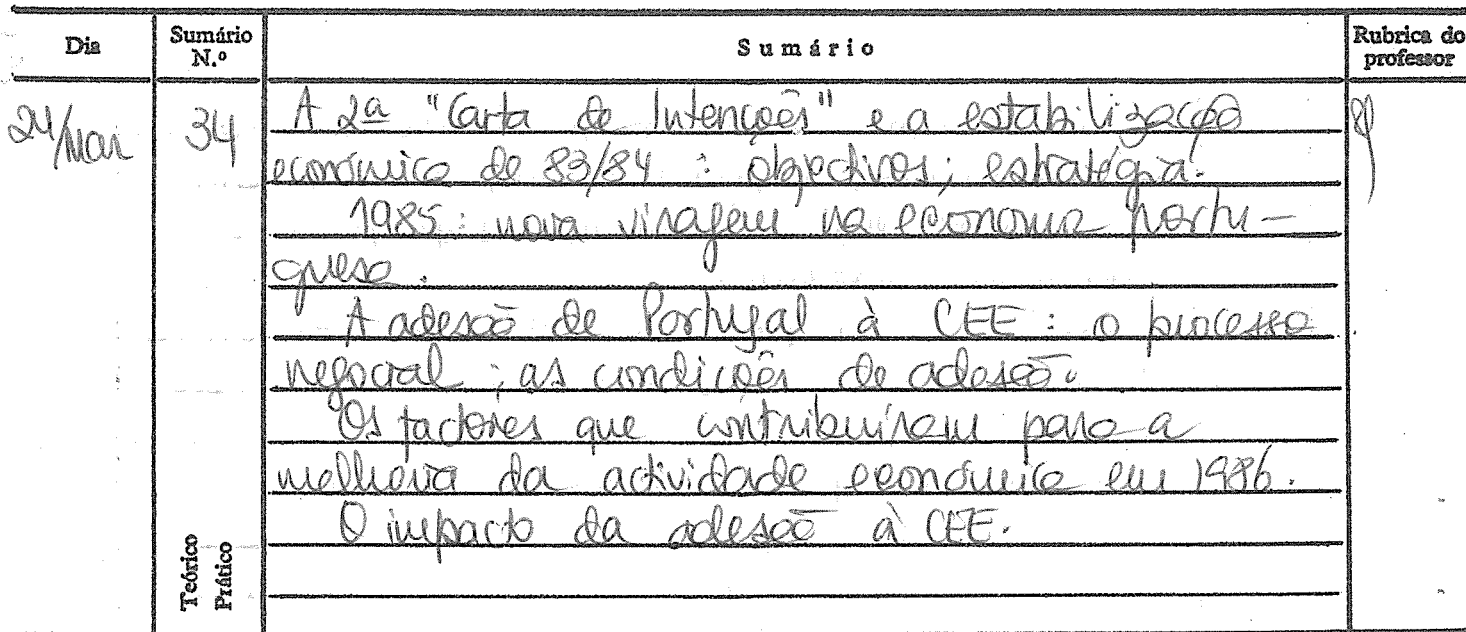 Dia
Sumário N.º
Sumário
Rubrica do professor
24/Mai
34
A 2ª "Carta de Intenções" e a estabilização
económica de 83/84 : objectivos; estratégia.
1985: nova viragem na economia portu-
guesa.
A adesão de Portugal à CEE : o processo
negocial ; as condições de adesão.
Os factores que contribuíram para a
melhoria da actividade económica em 1986.
O impacto da adesão à CEE.
Teórico
Prático